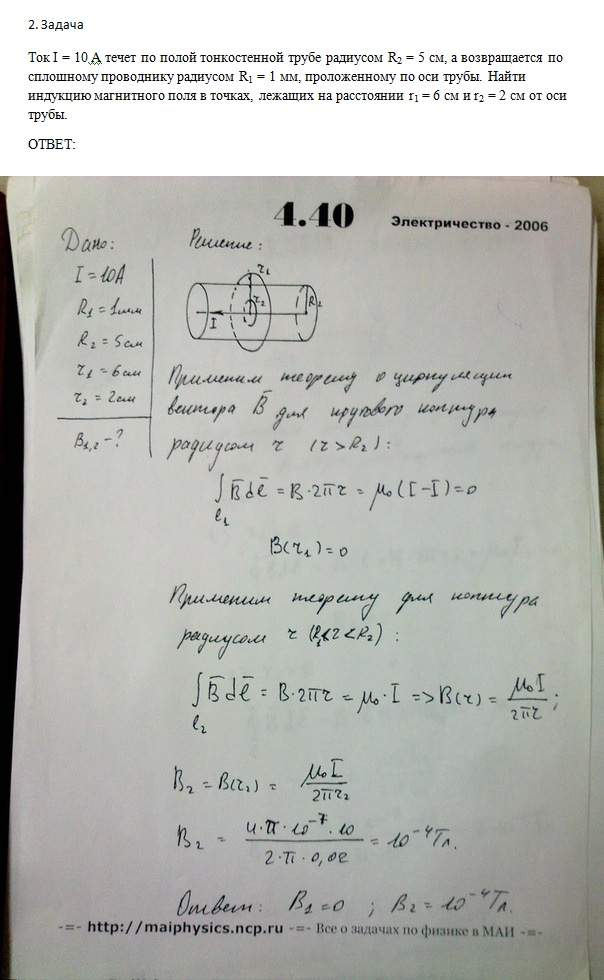 2. Задача
Ток I = 10 А течет по полой тонкостенной трубе радиусом R₂ = 5 см, а возвращается по
сплошному проводнику радиусом R₁ = 1 мм, проложенному по оси трубы. Найти
индукцию магнитного поля в точках, лежащих на расстоянии r₁ = 6 см и r₂ = 2 см от оси
трубы.
ОТВЕТ:
4.40
Электричество - 2006
Дано:
I = 10А
R₁ = 1мм
R₂ = 5см
r₁ = 6см
r₂ = 2см
B₁,₂ - ?
Решение:
r₁
r₂
R₂
I
Применим теорему о циркуляции
вектора B̄ для кругового контура
радиусом r (r > R₂):
∫ B̄ dℓ̄ = B·2πr = μ₀(I-I) = 0
ℓ₁
B(r₁) = 0
Применим теорему для контура
радиусом r (R₁<r<R₂):
∫ B̄ dℓ̄ = B·2πr = μ₀·I => B(r) = μ₀I / 2πr ;
ℓ₂
B₂ = B(r₂) = μ₀I / 2πr₂
B₂ = 4·π·10⁻⁷·10 / 2·π·0,02 = 10⁻⁴Тл.
Ответ: B₁ = 0 ; B₂ = 10⁻⁴Тл.
-=- http://maiphysics.ncp.ru -=- Все о задачах по физике в МАИ -=-